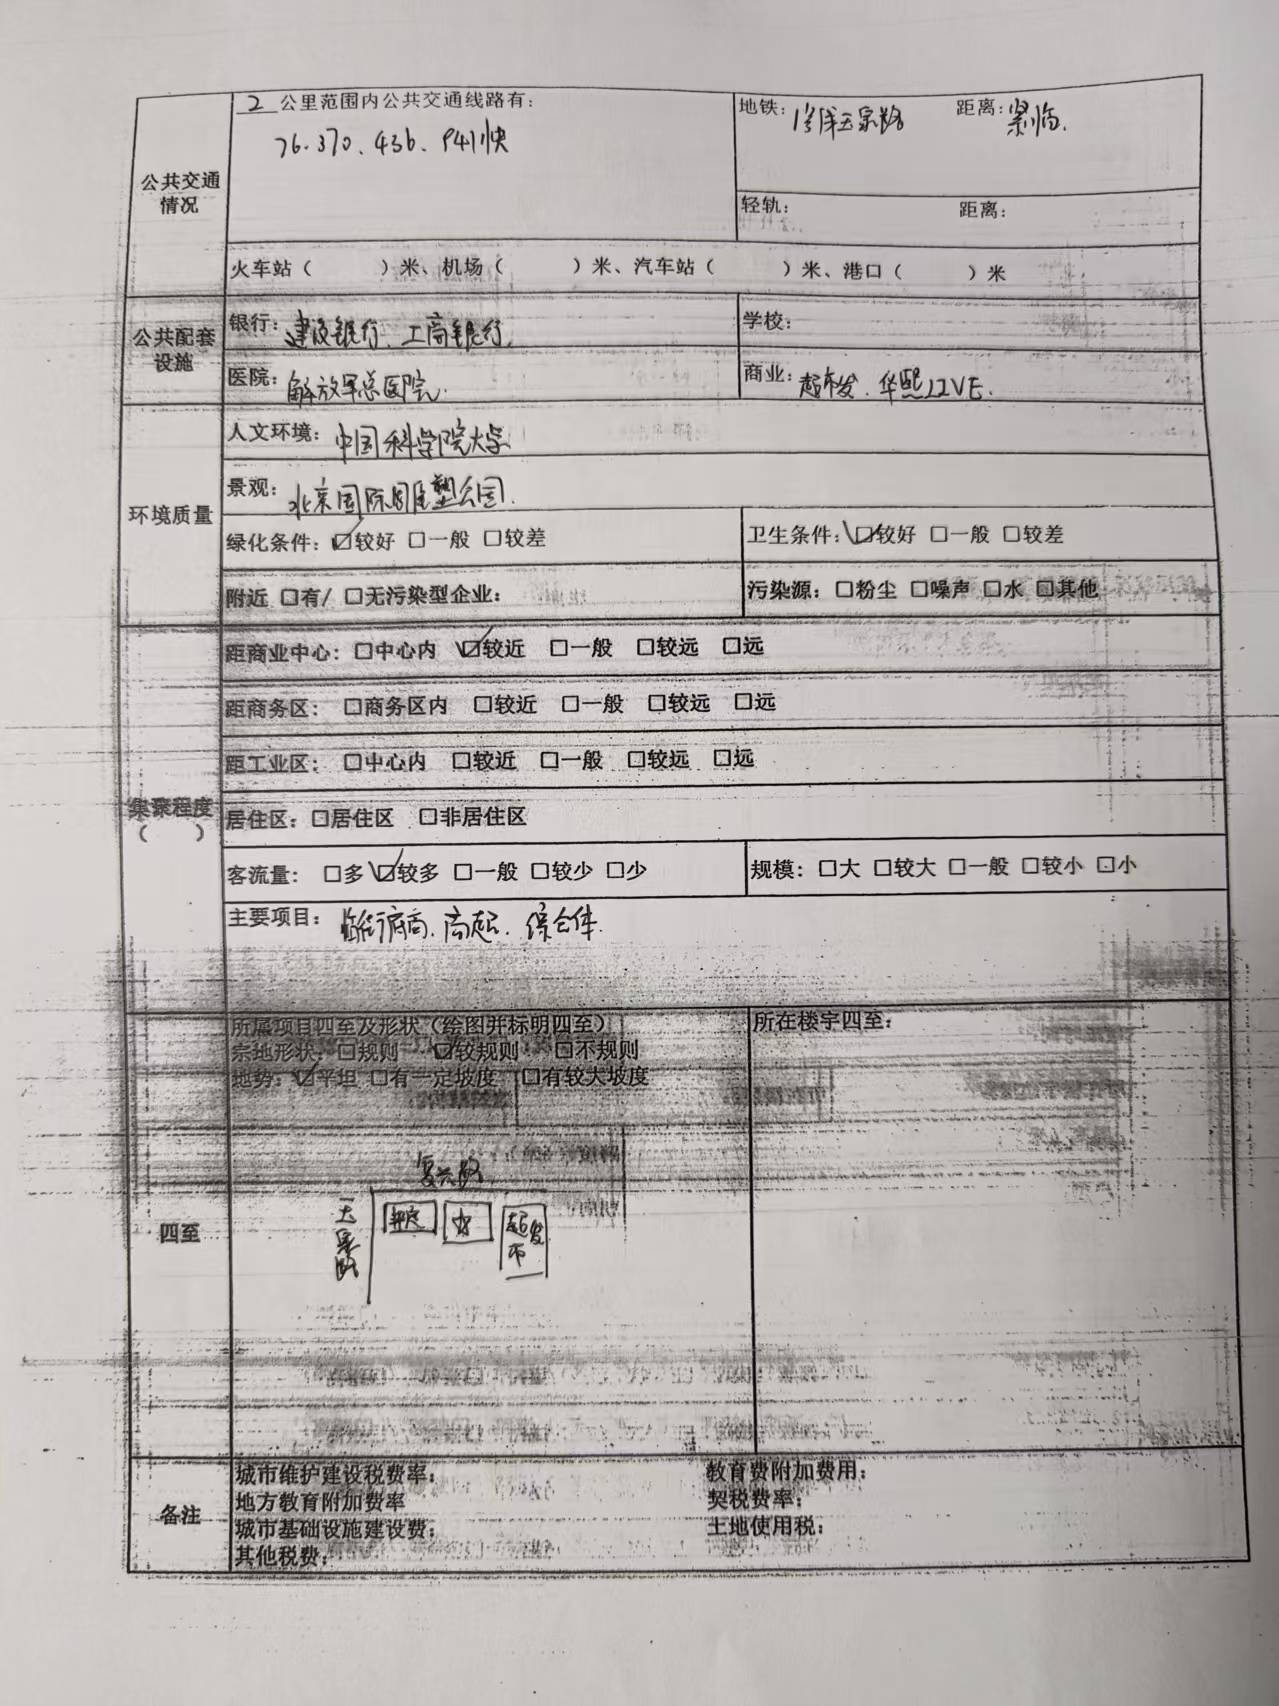 2 公里范围内公共交通线路有：
76.370.436.941快
地铁：1号线五棵松 距离：紧临.
公共交通情况
轻轨： 距离：
火车站（ ）米、机场（ ）米、汽车站（ ）米、港口（ ）米
公共配套设施
银行：建设银行、工商银行.
学校：
医院：解放军总医院.
商业：超市发、华熙LIVE.
环境质量
人文环境：中国科学院大学
景观：北京国际雕塑公园.
绿化条件：☑较好 □一般 □较差
卫生条件：☑较好 □一般 □较差
附近 □有/ □无污染型企业：
污染源：□粉尘 □噪声 □水 □其他
集聚程度（ ）
距商业中心：□中心内 ☑较近 □一般 □较远 □远
距商务区： □商务区内 □较近 □一般 □较远 □远
距工业区： □中心内 □较近 □一般 □较远 □远
居住区：□居住区 □非居住区
客流量： □多 ☑较多 □一般 □较少 □少
规模：□大 □较大 □一般 □较小 □小
主要项目：临街底商、商超、综合体.
四至
所属项目四至及形状（绘图并标明四至）
宗地形状：□规则 ☑较规则 □不规则
地势：☑平坦 □有一定坡度 □有较大坡度
所在楼宇四至：
复兴路
超市发
备注
城市维护建设税费率： 教育费附加费用：
地方教育附加费率 契税费率：
城市基础设施建设费： 土地使用税：
其他税费：